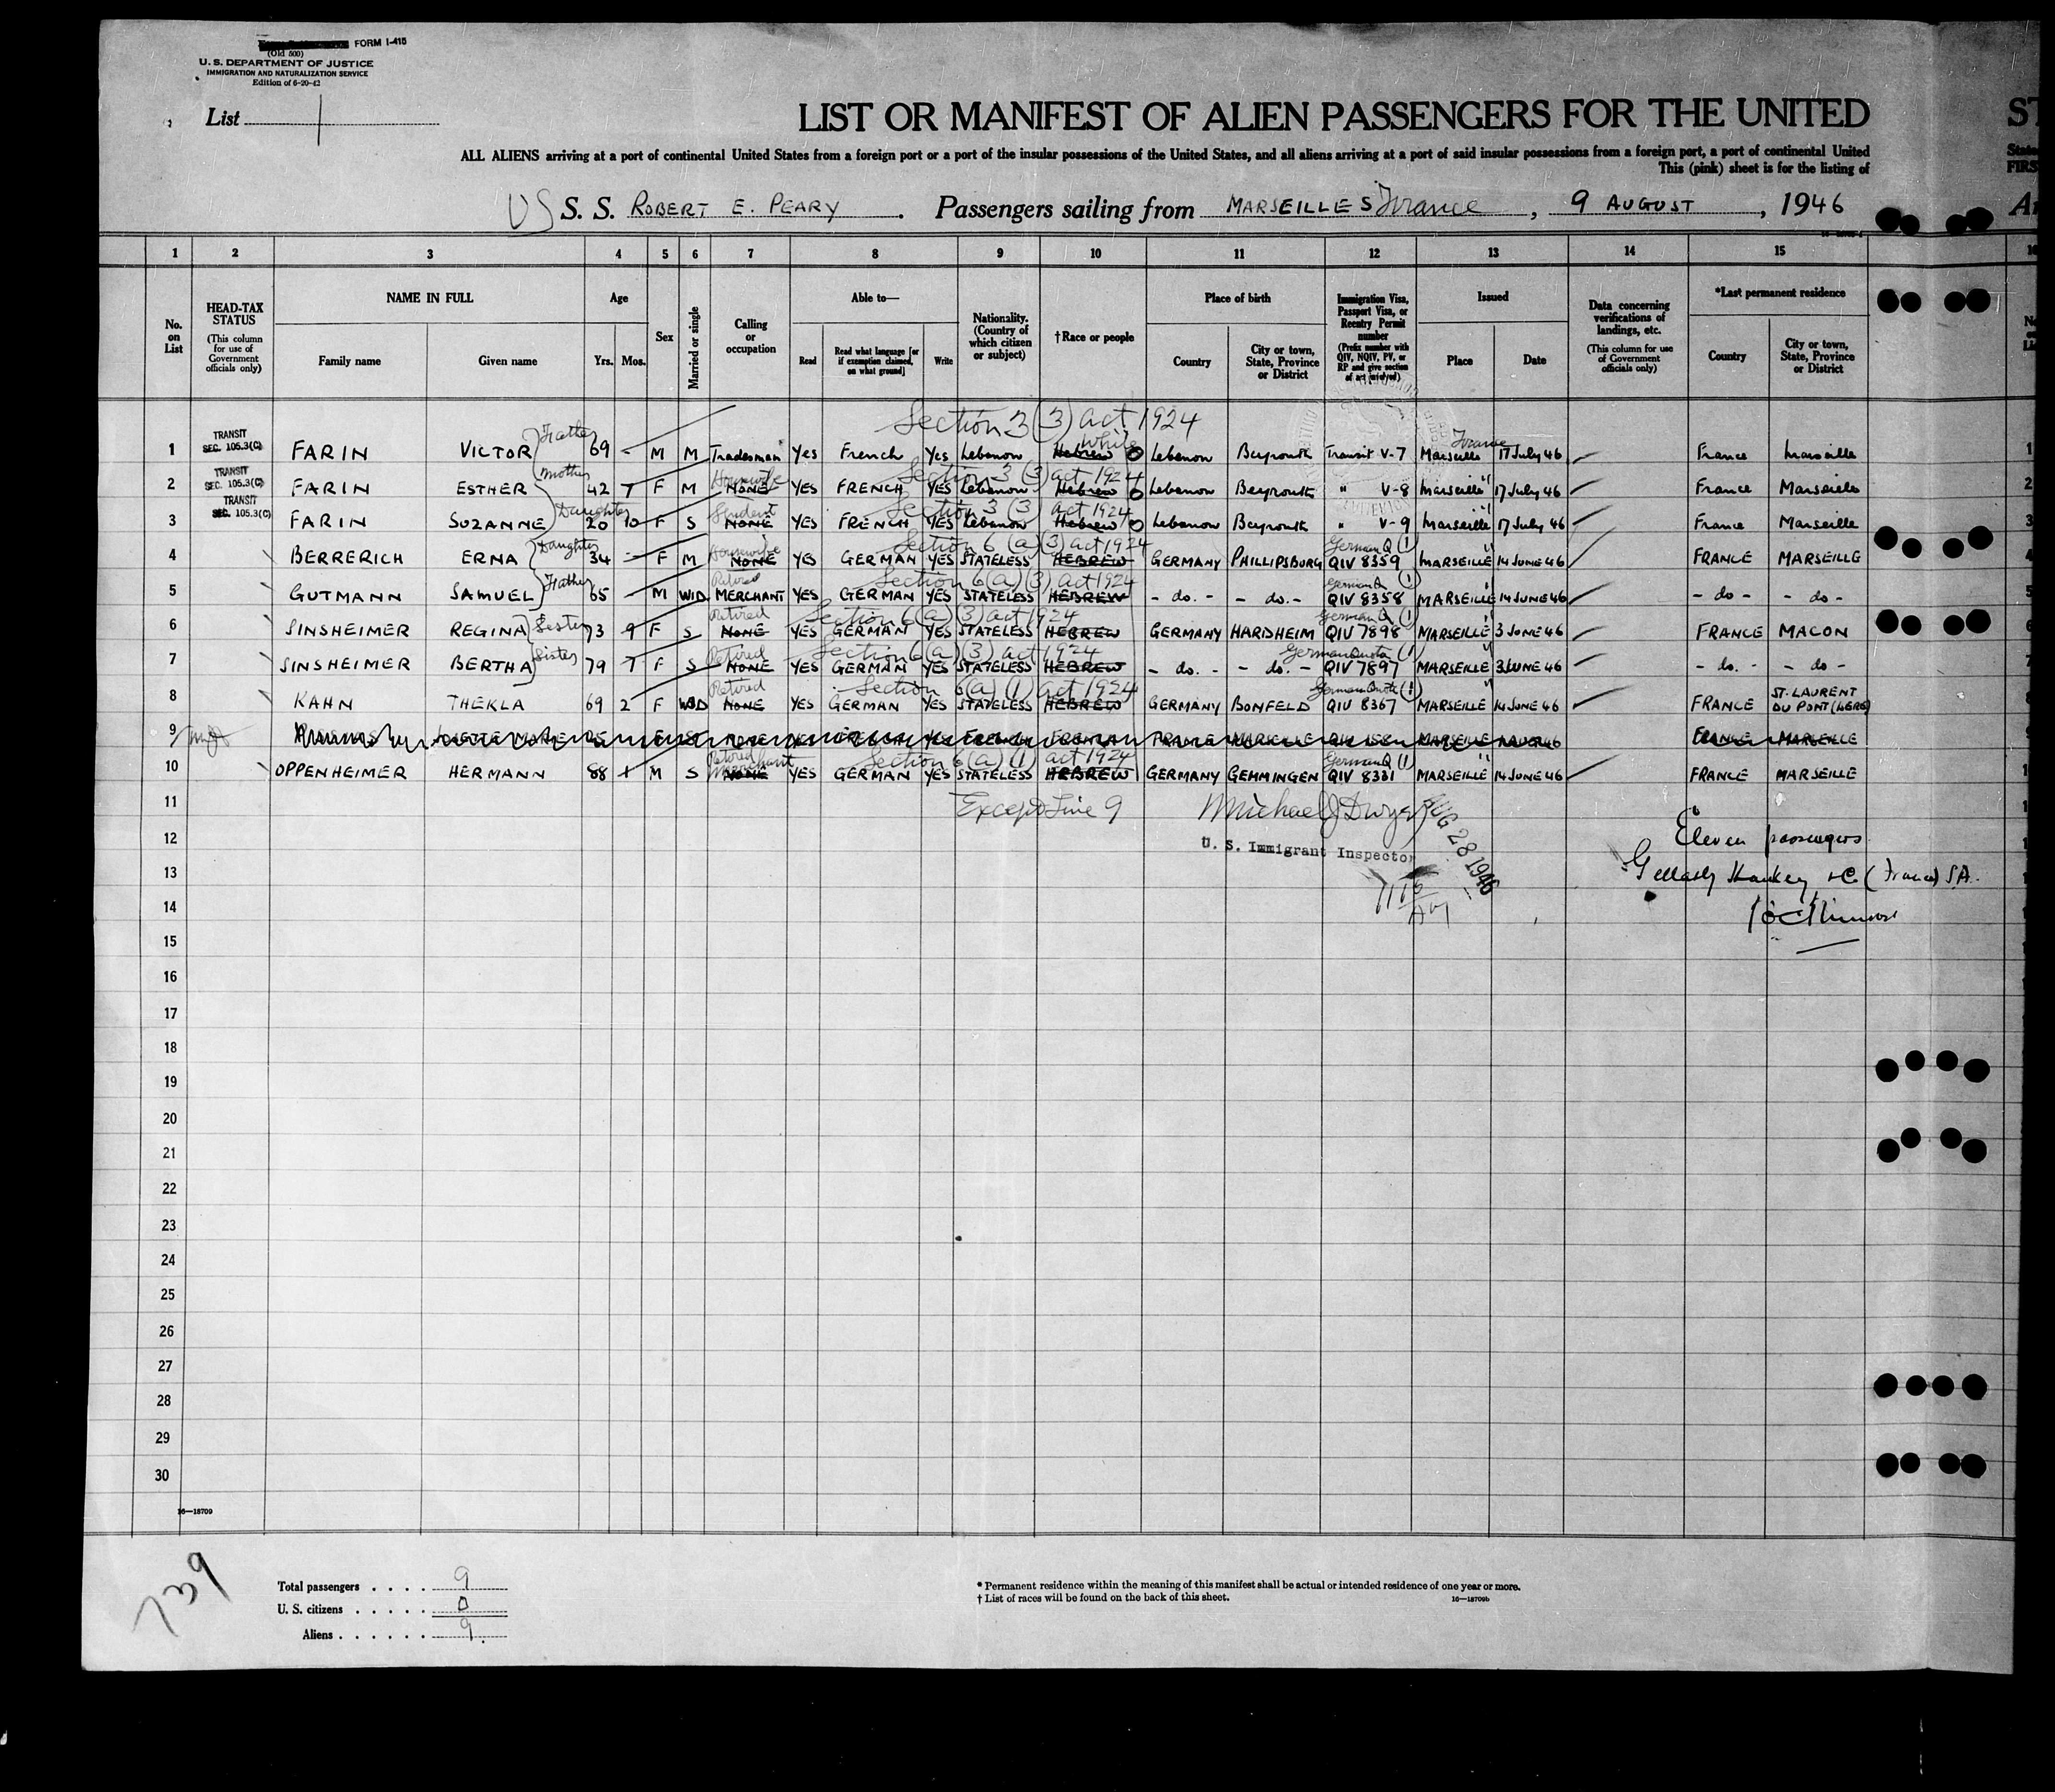 FORM I-415
(Old 500)
U. S. DEPARTMENT OF JUSTICE
IMMIGRATION AND NATURALIZATION SERVICE
Edition of 6-20-42
List 1
LIST OR MANIFEST OF ALIEN PASSENGERS FOR THE UNITED
ST
ALL ALIENS arriving at a port of continental United States from a foreign port or a port of the insular possessions of the United States, and all aliens arriving at a port of said insular possessions from a foreign port, a port of continental United
State
This (pink) sheet is for the listing of
FIRS
US S. S. ROBERT E. PEARY . Passengers sailing from MARSEILLES France , 9 AUGUST , 1946
1 2 3 4 5 6 7 8 9 10 11 12 13 14 15
No. on List
HEAD-TAX STATUS
(This column for use of Government officials only)
NAME IN FULL
Family name Given name
Age
Yrs. Mos.
Sex
Married or single
Calling or occupation
Able to—
Read
Read what language [or if exemption claimed, on what ground]
Write
Nationality. (Country of which citizen or subject)
†Race or people
Place of birth
Country
City or town, State, Province or District
Immigration Visa, Passport Visa, or Reentry Permit number
(Prefix number with QIV, NQIV, PV, or RP and give section of act involved)
Issued
Place Date
Data concerning verifications of landings, etc.
(This column for use of Government officials only)
*Last permanent residence
Country
City or town, State, Province or District
Section 3 (3) act 1924
1 TRANSIT SEC. 105.3(C) FARIN VICTOR Father 69 - M M Tradesman Yes French Yes Lebanon Hebrew White Lebanon Beyrouth Transit V-7 Marseille France 17 July 46 France Marseille
Section 3 (3) act 1924
2 TRANSIT SEC. 105.3(C) FARIN ESTHER Mother 42 7 F M Housewife NONE YES FRENCH YES Lebanon Hebrew Lebanon Beyrouth " V-8 Marseille " 17 July 46 France Marseille
Section 3 (3) act 1924
3 TRANSIT SEC. 105.3(C) FARIN SUZANNE Daughter 20 10 F S Student NONE YES FRENCH YES Lebanon Hebrew Lebanon Beyrouth " V-9 Marseille " 17 July 46 France Marseille
Section 6 (a) (3) act 1924
4 BERRERICH ERNA Daughter 34 - F M Housewife NONE YES GERMAN YES STATELESS HEBREW GERMANY PHILLIPSBURG German Q (1) QIV 8359 MARSEILLE " 14 JUNE 46 FRANCE MARSEILLE
Section 6(a) (3) act 1924
5 GUTMANN SAMUEL Father 65 - M WID Retired MERCHANT YES GERMAN YES STATELESS HEBREW - do. - - do. - German Q (1) QIV 8358 MARSEILLE " 14 JUNE 46 - do - - do -
Section 6(a) (3) act 1924
6 SINSHEIMER REGINA Sister 73 9 F S Retired NONE YES GERMAN YES STATELESS HEBREW GERMANY HARDHEIM German Q (1) QIV 7898 MARSEILLE " 3 JUNE 46 FRANCE MACON
Section 6(a) (3) act 1924
7 SINSHEIMER BERTHA Sister 79 7 F S Retired NONE YES GERMAN YES STATELESS HEBREW - do. - - do. - German Quota (1) QIV 7897 MARSEILLE " 3 JUNE 46 - do. - - do -
Section 6(a) (1) act 1924
8 KAHN THEKLA 69 2 F WID Retired NONE YES GERMAN YES STATELESS HEBREW GERMANY BONFELD German Quota (1) QIV 8367 MARSEILLE " 14 JUNE 46 FRANCE ST. LAURENT DU PONT (ISERE)
9 FRANCE MARSEILLE
Section 6(a) (1) act 1924
10 OPPENHEIMER HERMANN 88 M S Retired Merchant NONE YES GERMAN YES STATELESS HEBREW GERMANY GEMMINGEN German Q (1) QIV 8331 MARSEILLE " 14 JUNE 46 FRANCE MARSEILLE
11 Except Line 9 Michael J Dwyer AUG 28 1946
12 U. S. Immigrant Inspector Eleven passengers
13 Gellatly Hankey & Co (France) S.A.
14
15
16
17
18
19
20
21
22
23
24
25
26
27
28
29
30
16—18709
739
Total passengers . . . . 9
U. S. citizens . . . . . 0
Aliens . . . . . . 9
* Permanent residence within the meaning of this manifest shall be actual or intended residence of one year or more.
† List of races will be found on the back of this sheet.
16—18709b